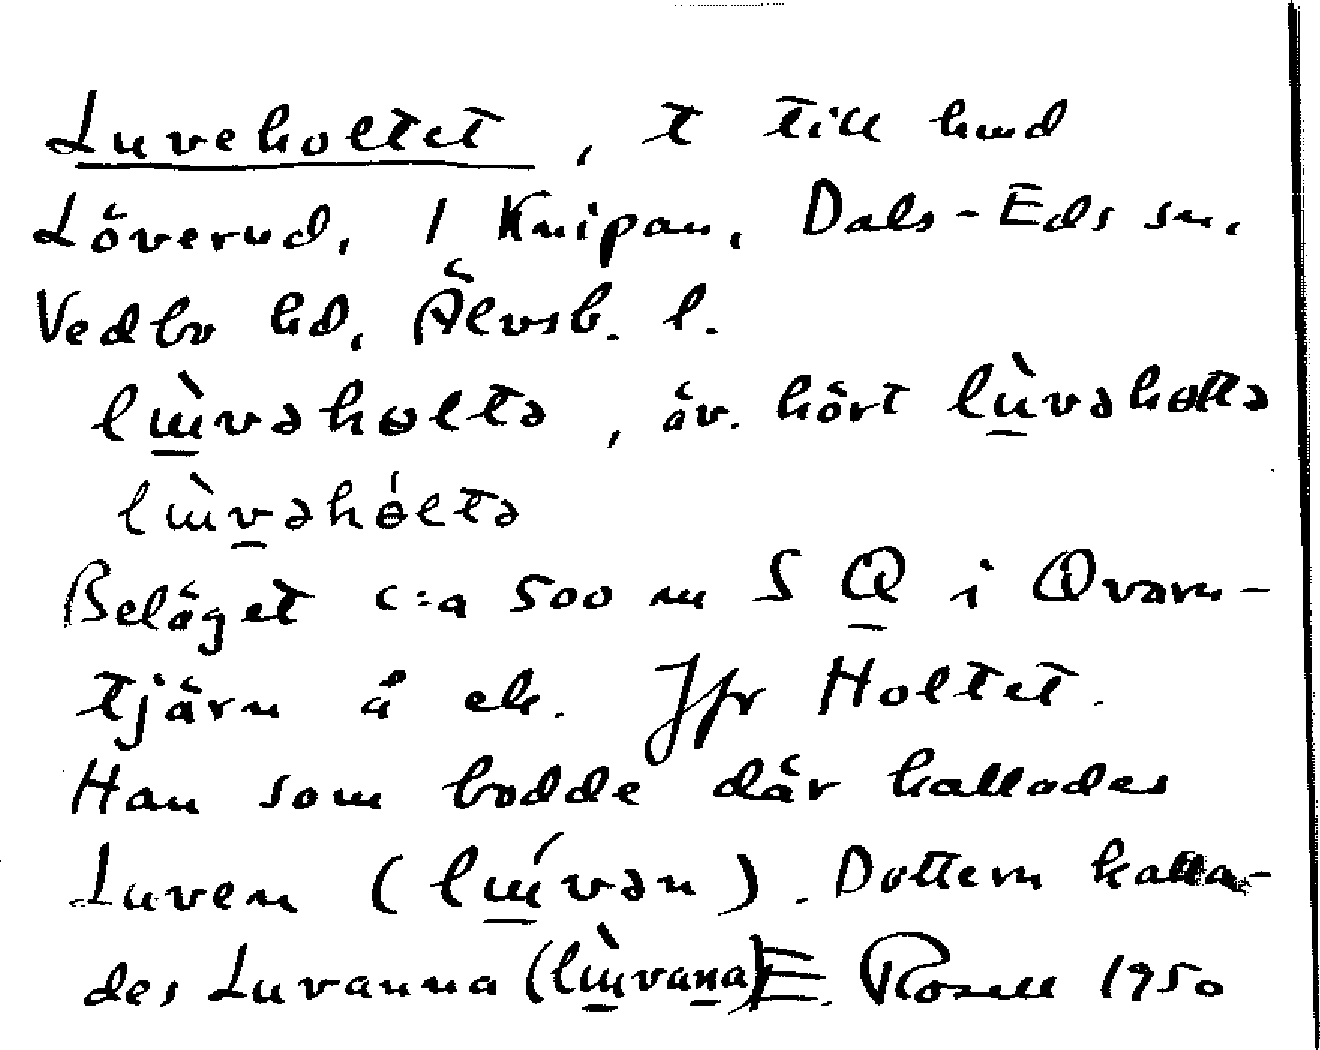 Luveholtet, t till hmd
Löverud, 1 Knipan, Dals-Eds sn,
Vedbo hd, Älvsb. l.
lɯ̀vəhɵltə, äv. hört lùvəhɵltə
lɯ̀vəhɵ́ltə
Beläget c:a 500 m S Q i Qvarn-
tjärn å ek. Jfr Holtet.
Han som bodde där kallades
Luven (lɯ́vən). Dottern kalla-
des Luvanna (lɯ̀vana) E. Rosell 1950